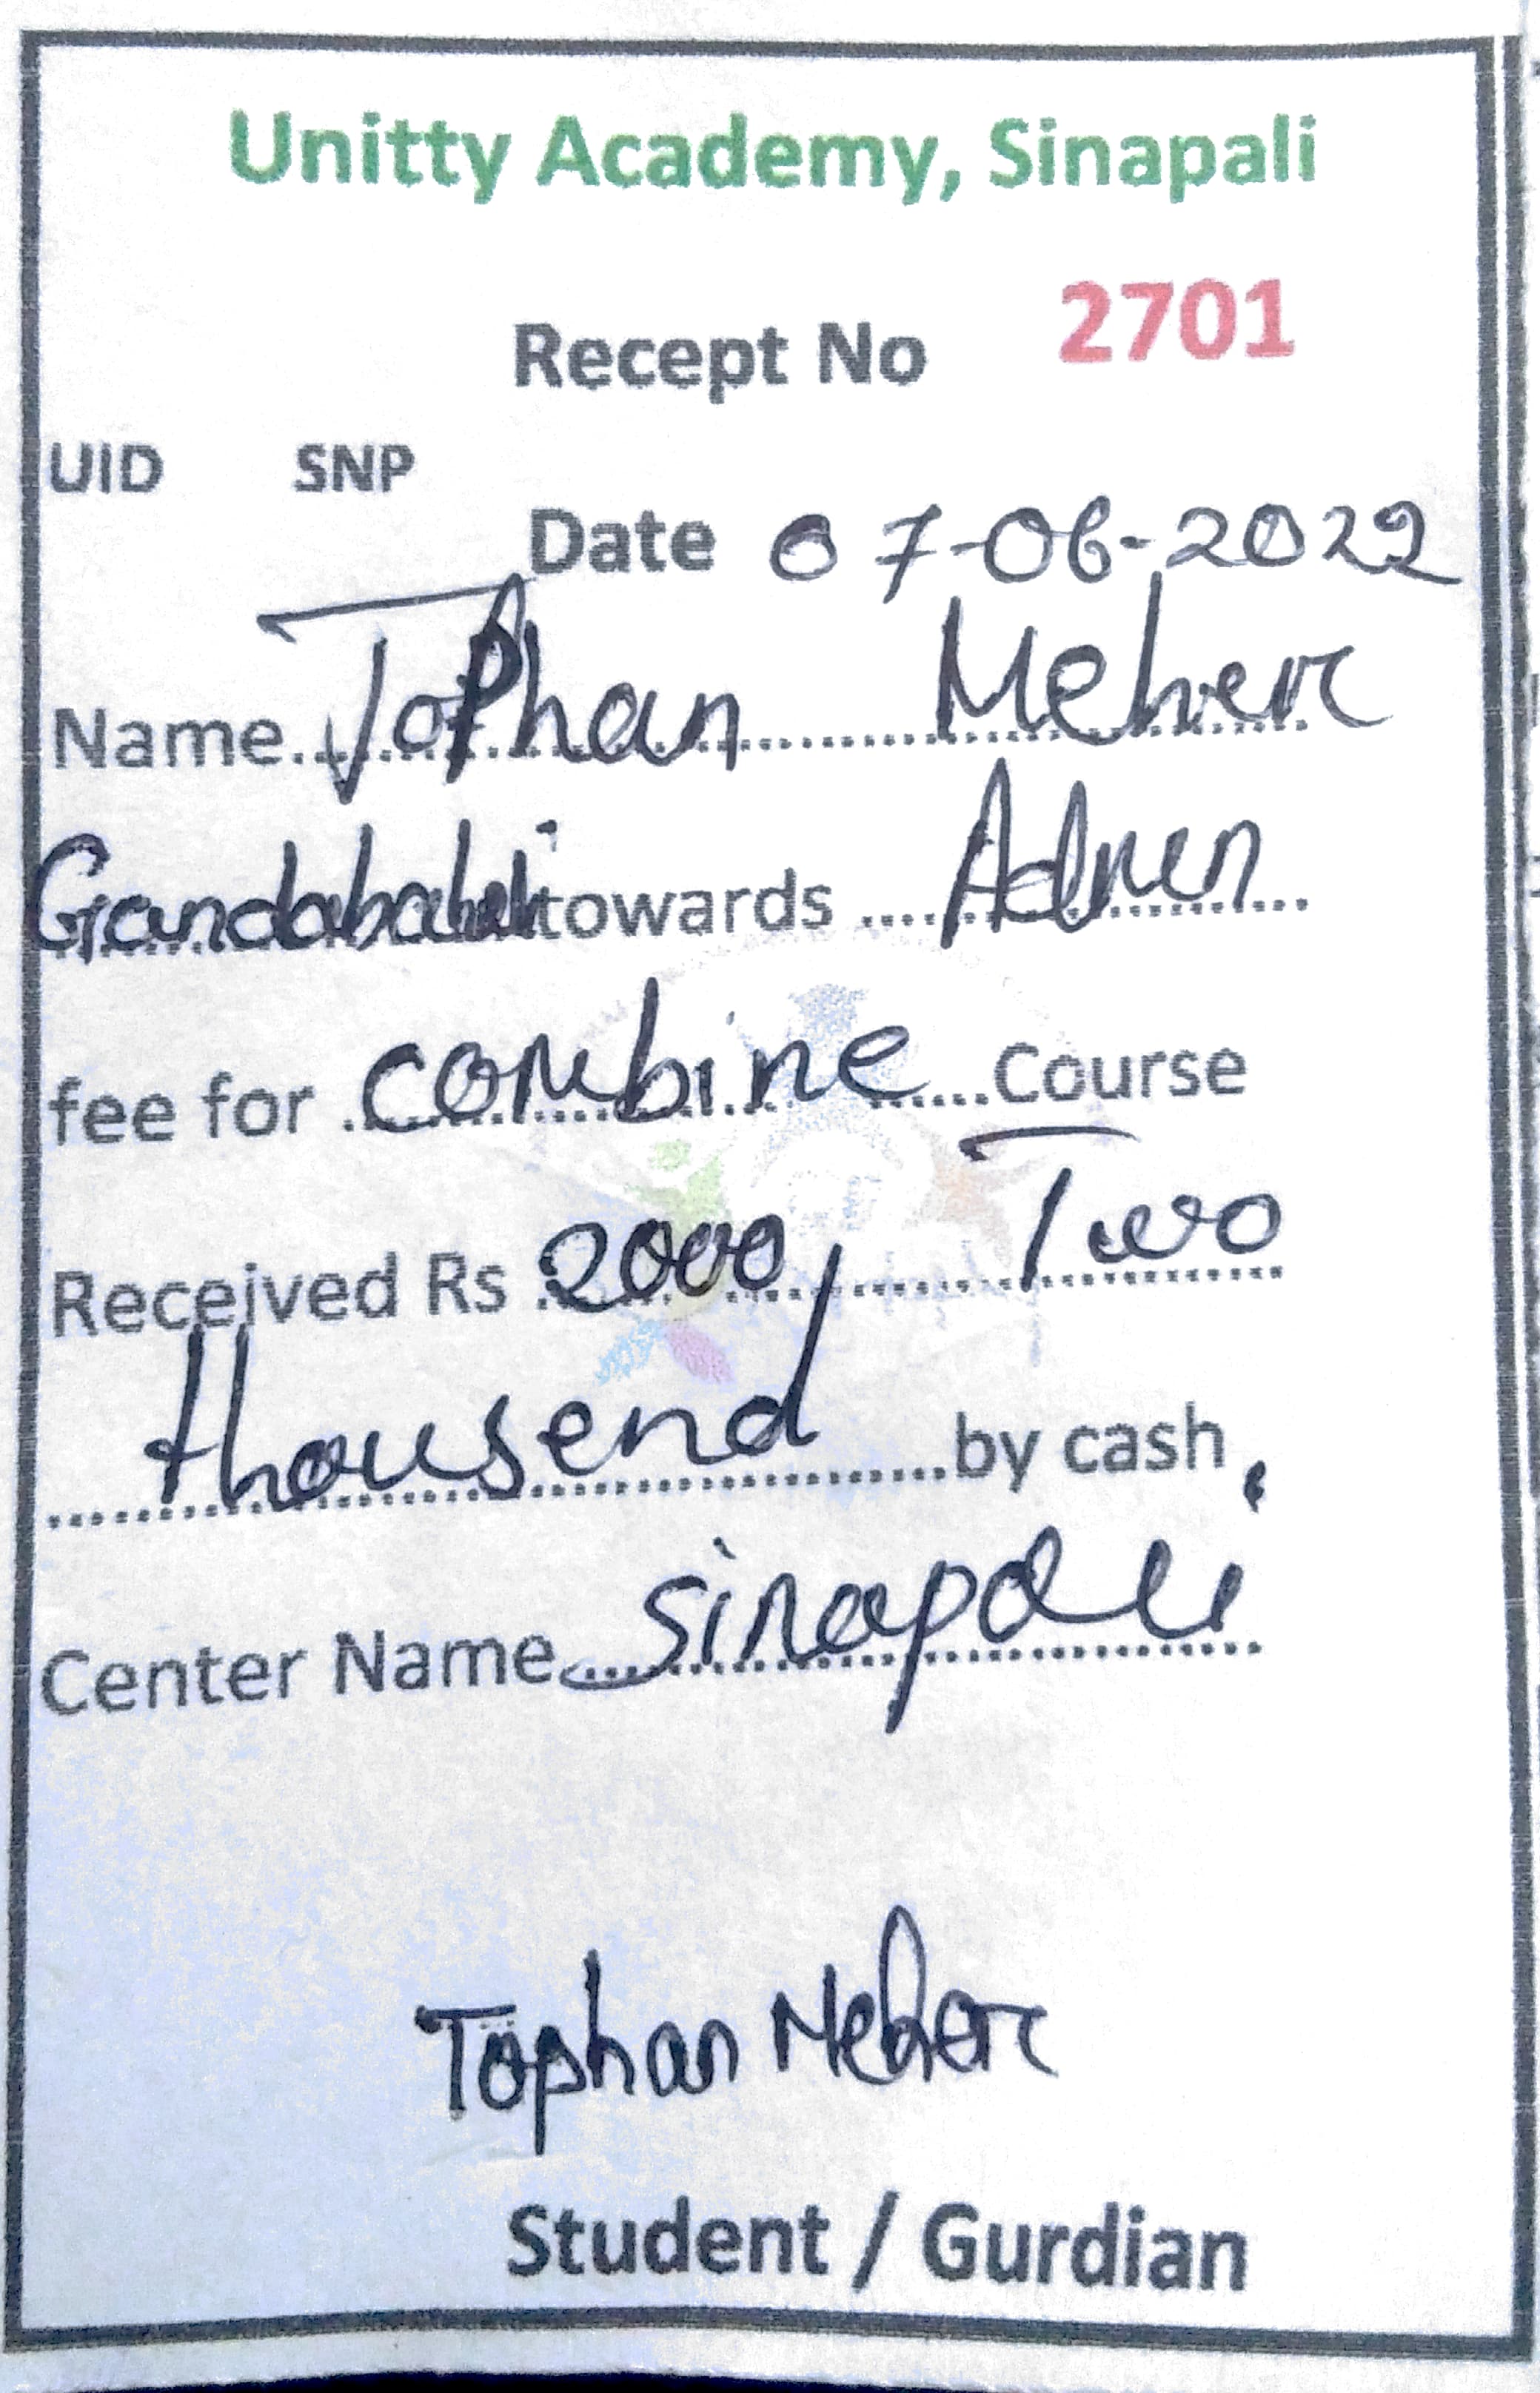 Unitty Academy, Sinapali
Recept No 2701
UID SNP
Date 07-06-2022
Name Tophan Meher
towards Admn
fee for combine Course
Received Rs 2000/ Two
thousend by cash
Center Name sinapali
Tophan Meher
Student / Gurdian